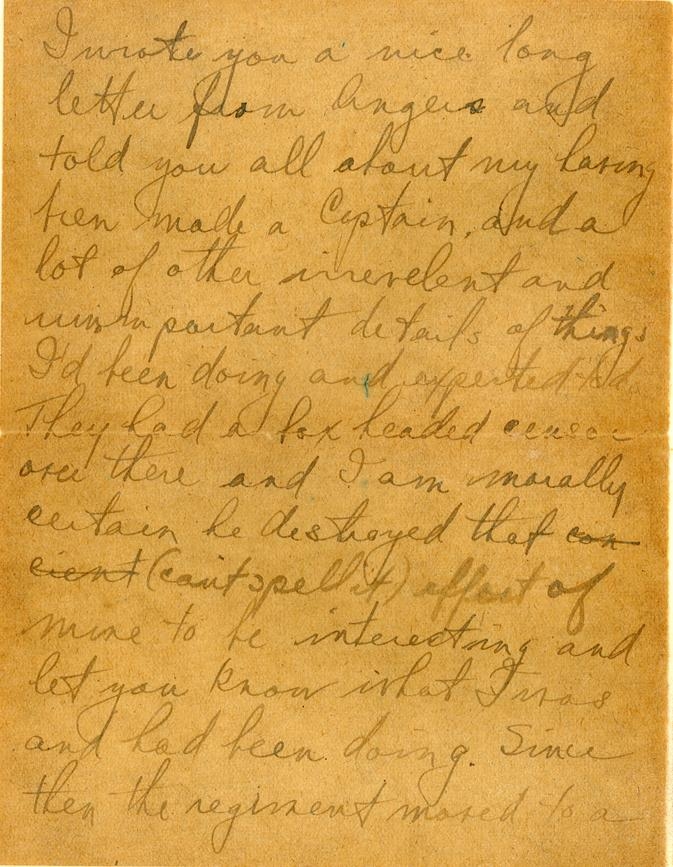 I wrote you a nice long
letter from Angers and
told you all about my having
been made a Captain, and a
lot of other irrevelent and
unimportant details of things
I'd been doing and expected to do.
They had a box headed censor
over there and I am morally
certain he destroyed that con
cient (can't spell it) effort of
mine to be interesting and
let you know what I was
and had been doing. Since
then the regiment moved to a